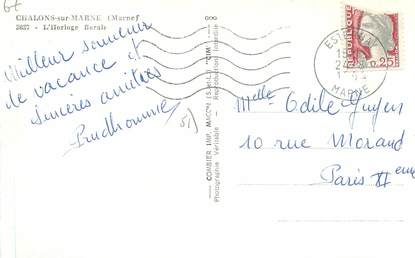 CHALONS-sur-MARNE (Marne)
3627 - L'Horloge florale
Meilleur souvenir
de vacance et
sincères amitiés
Prudhomme
51)
COMBIER IMP. MACON (S.-et-L.) "CIM"
Photographie Véritable - Reproduction interdite
MARNE
0,25
Melle Odile Guyen
10 rue Morand
Paris XI eme